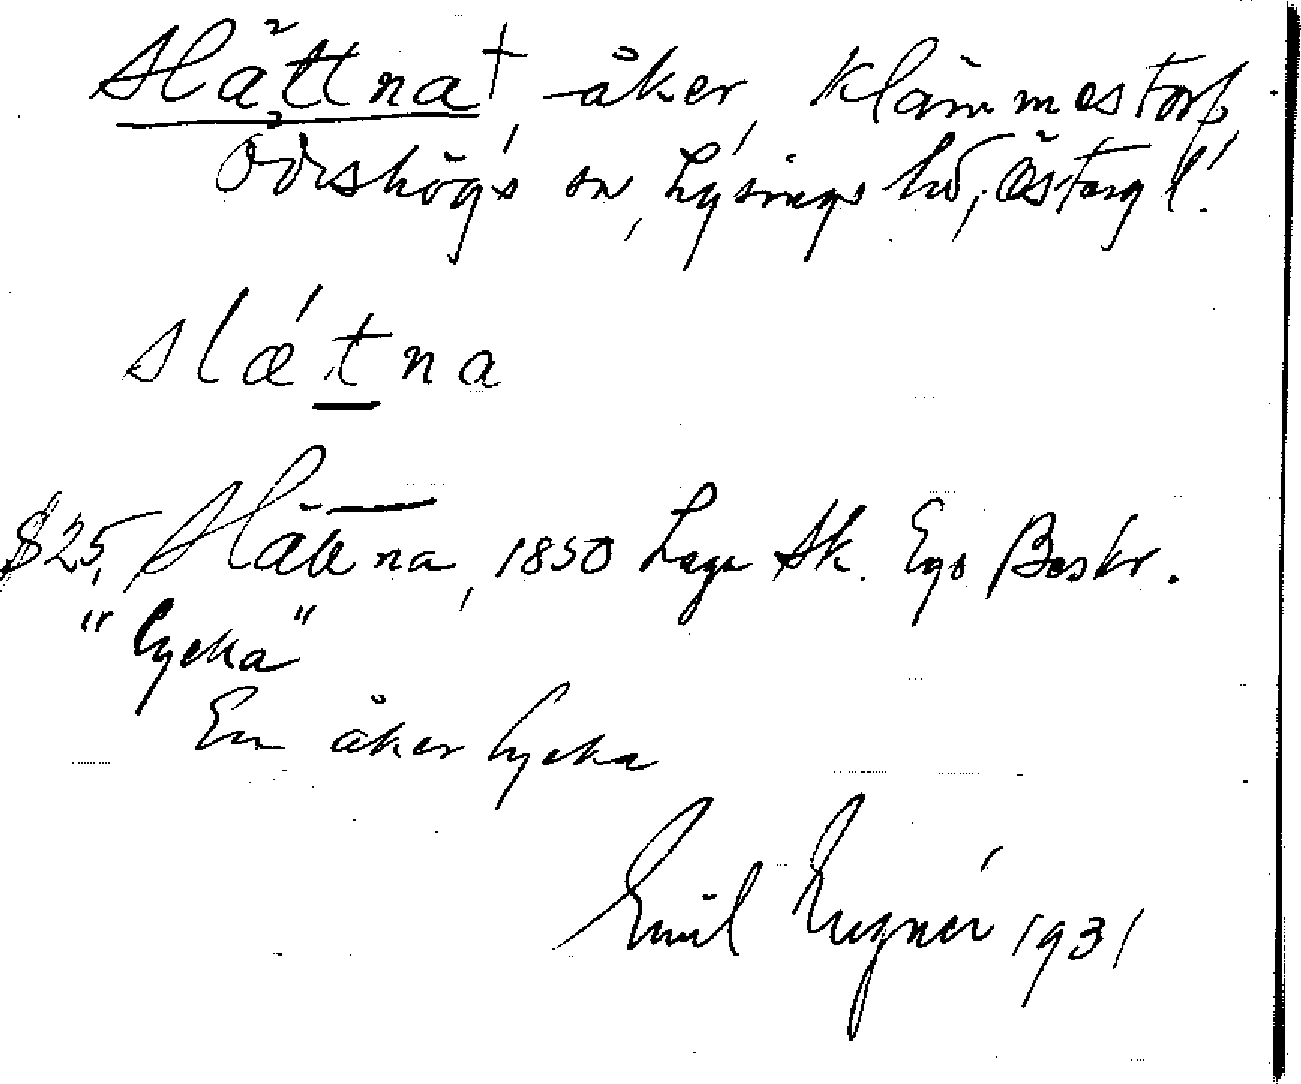 Slättna† åker, Klämmestorp,
Ödeshögs sn, Lysings hd, Östergl.
slǽtna
$25, Slättna, 1850 Laga Sk. Ego Beskr.
"lycka"
En åker lycka
Emil 1931